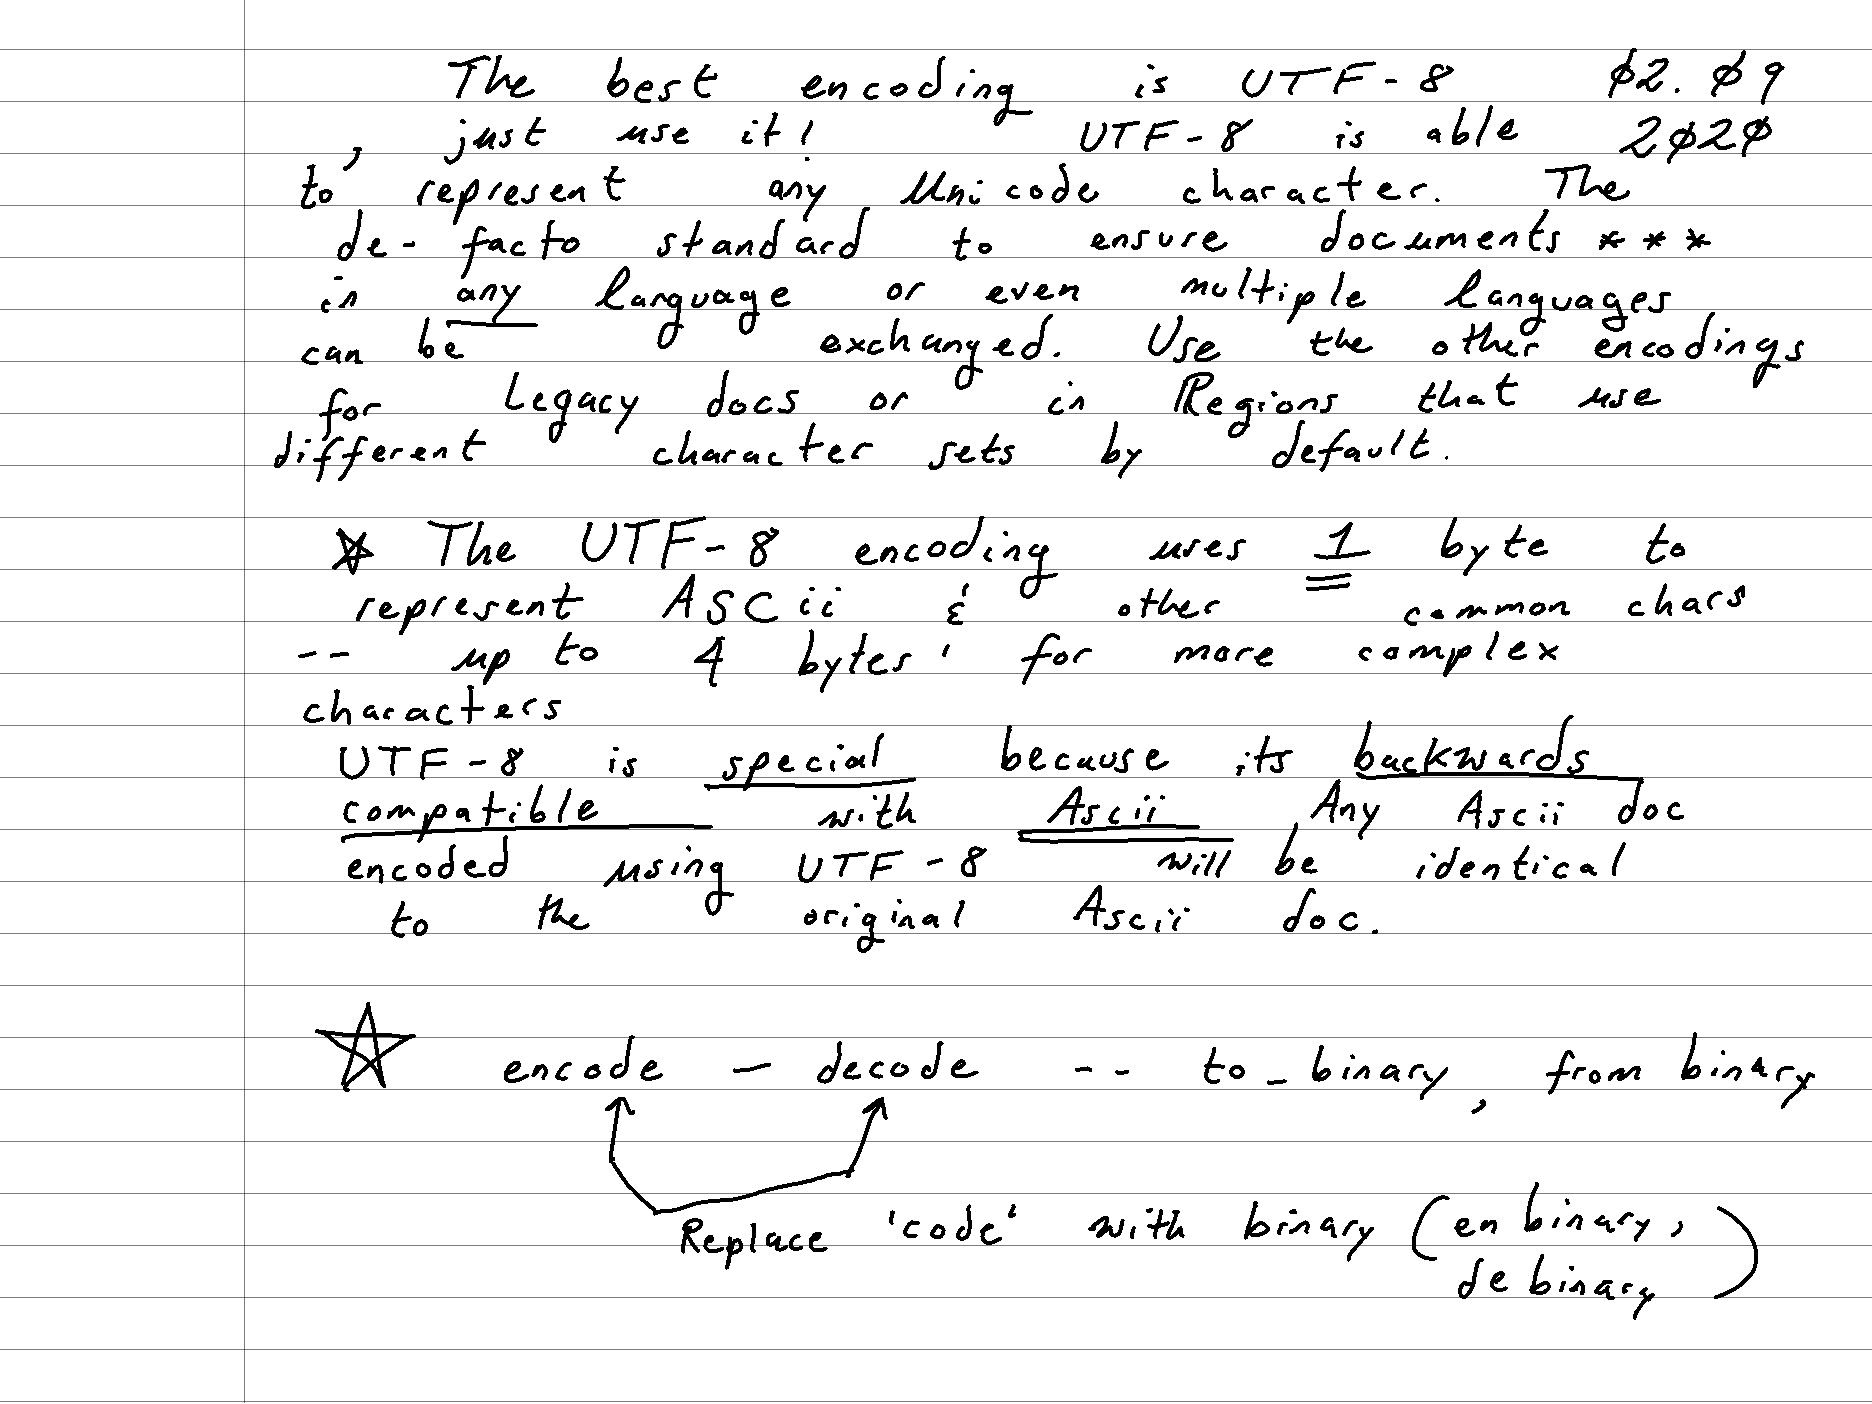 The best encoding is UTF-8 02.09
, just use it! UTF-8 is able 2020
to represent any Unicode character. The
de-facto standard to ensure documents ***
in any language or even multiple languages
can be exchanged. Use the other encodings
for Legacy docs or in Regions that use
different character sets by default.
☆ The UTF-8 encoding uses 1 byte to
represent ASCii & other common chars
-- up to 4 bytes' for more complex
characters
UTF-8 is special because its backwards
compatible with Ascii Any Ascii doc
encoded using UTF-8 will be identical
to the original Ascii doc.
☆ encode - decode -- to_binary, from binary
Replace 'code' with binary (en binary,
de binary)